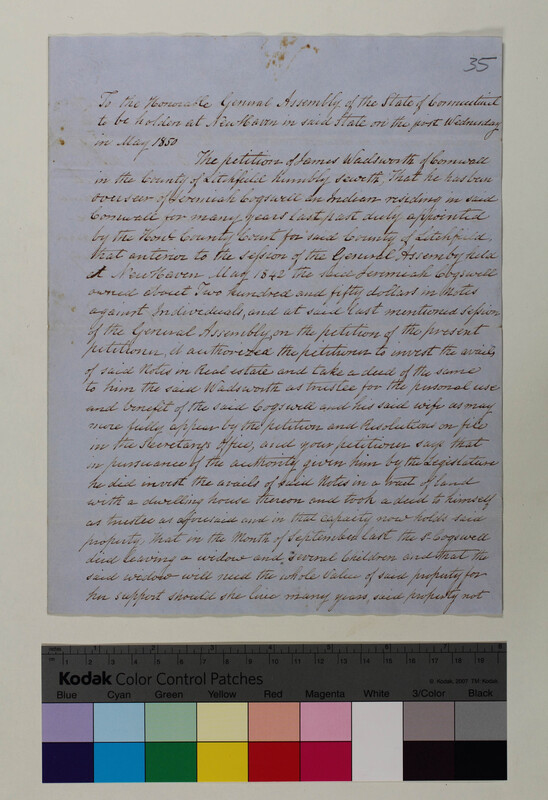 35
To the Honorable General Assembly of the State of Connecticut
to be holden at New Haven in said State on the first Wednesday
in May 1850
The petition of James Wadsworth of Cornwall
in the County of Litchfield humbly sheweth, That he has been
overseer of Jeremiah Cogswell an Indian residing in said
Cornwall for many years last past duly appointed
by the Honl. County Court for said County of Litchfield,
that anterior to the session of the General Assembly held
at New Haven May 1842 the said Jerimiah Cogswell
owned about Two hundred and fifty dollars in Notes
against Individuals, and at said last mentioned Session
of the General Assembly, on the petition of the present
petitioner, it authorized the petitioner to invest the avails
of said Notes in Real estate and take a deed of the same
to him the said Wadsworth as trustee for the personal use
and benefit of the said Cogswell and his said wife as may
more fully appear by the petition and Resolutions on file
in the Secretary's Office, and your petitioner says that
in pursuance of the authority given him by the Legislature
he did invest the avails of said Notes in a lot of land
with a dwelling house thereon and took a deed to himself
as trustee as aforesaid and in that capacity now holds said
property, that in the Month of September last the sd. Cogswell
died leaving a widow and several Children and that the
said widow will need the whole value of said property for
her support should she live many years, said property not
Kodak Color Control Patches
© Kodak, 2007 TM: Kodak
Blue Cyan Green Yellow Red Magenta White 3/Color Black